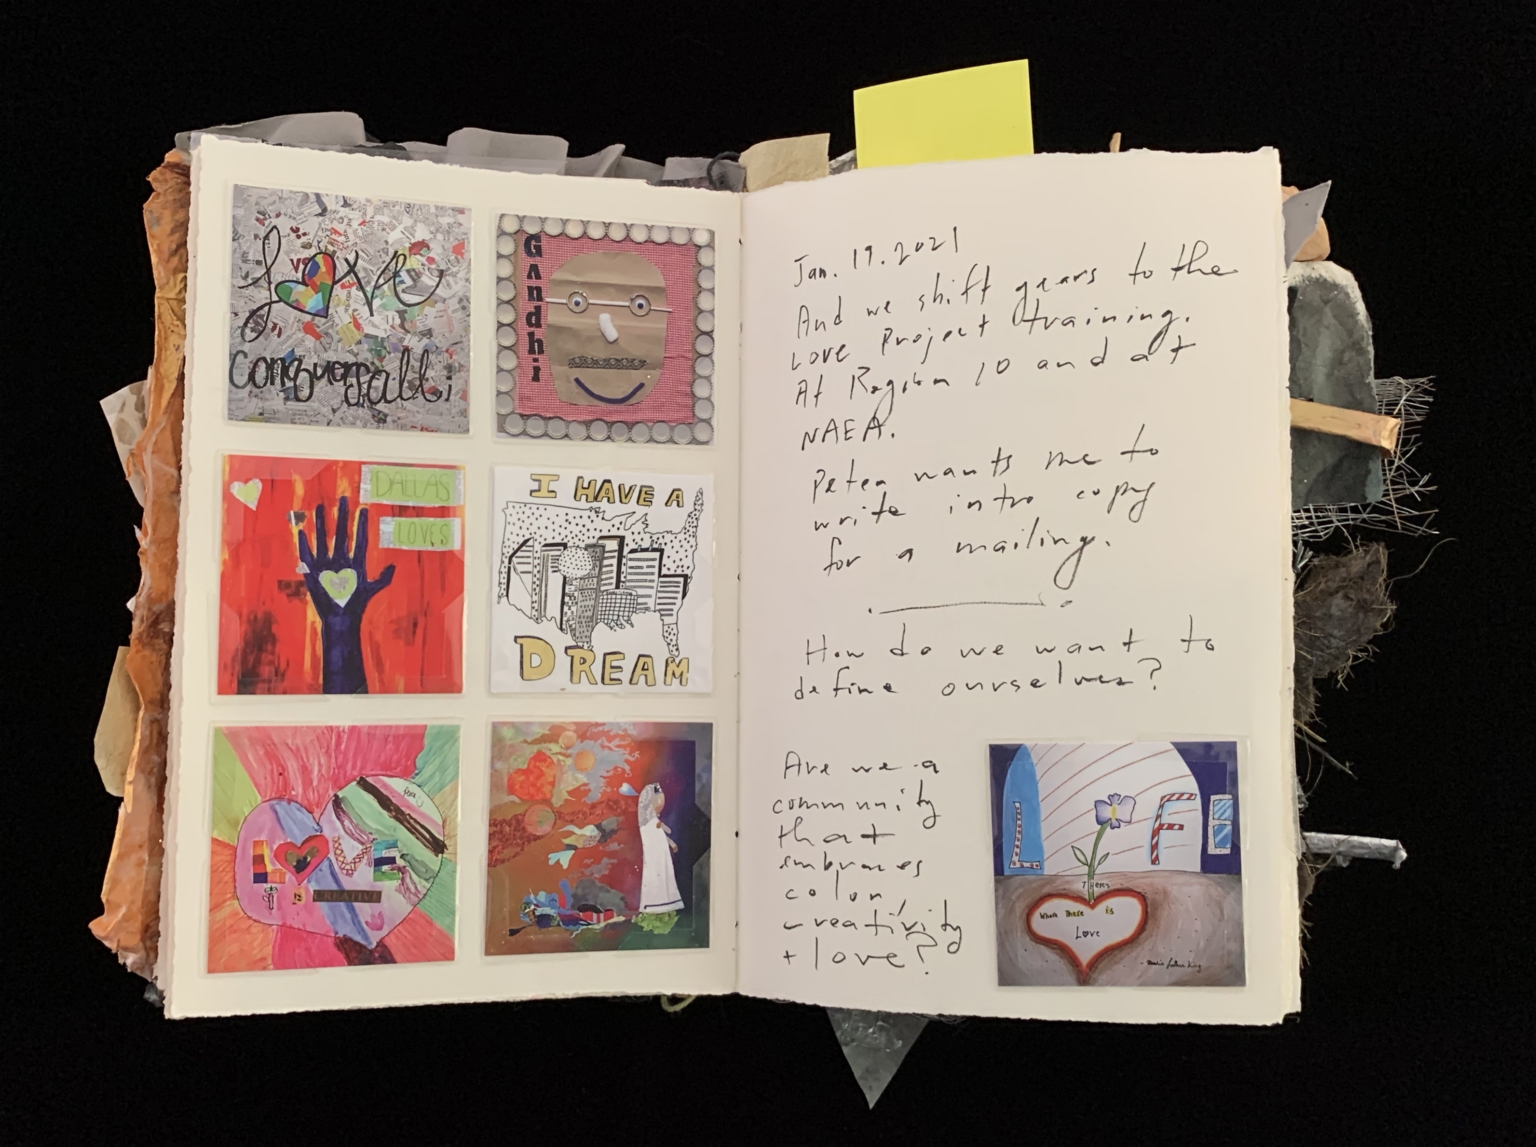 Love
Conquers all!
Gandhi
DALLAS
LOVES
I HAVE A
DREAM
CREATIVE
Jan. 19. 2021
And we shift gears to the
Love Project training.
At Region 10 and at
NAEA.
Peter wants me to
write intro copy
for a mailing.
How do we want to
define ourselves?
Are we a
community
that
embraces
color,
creativity
+ love?
L FE
Theres
Where there is
Love